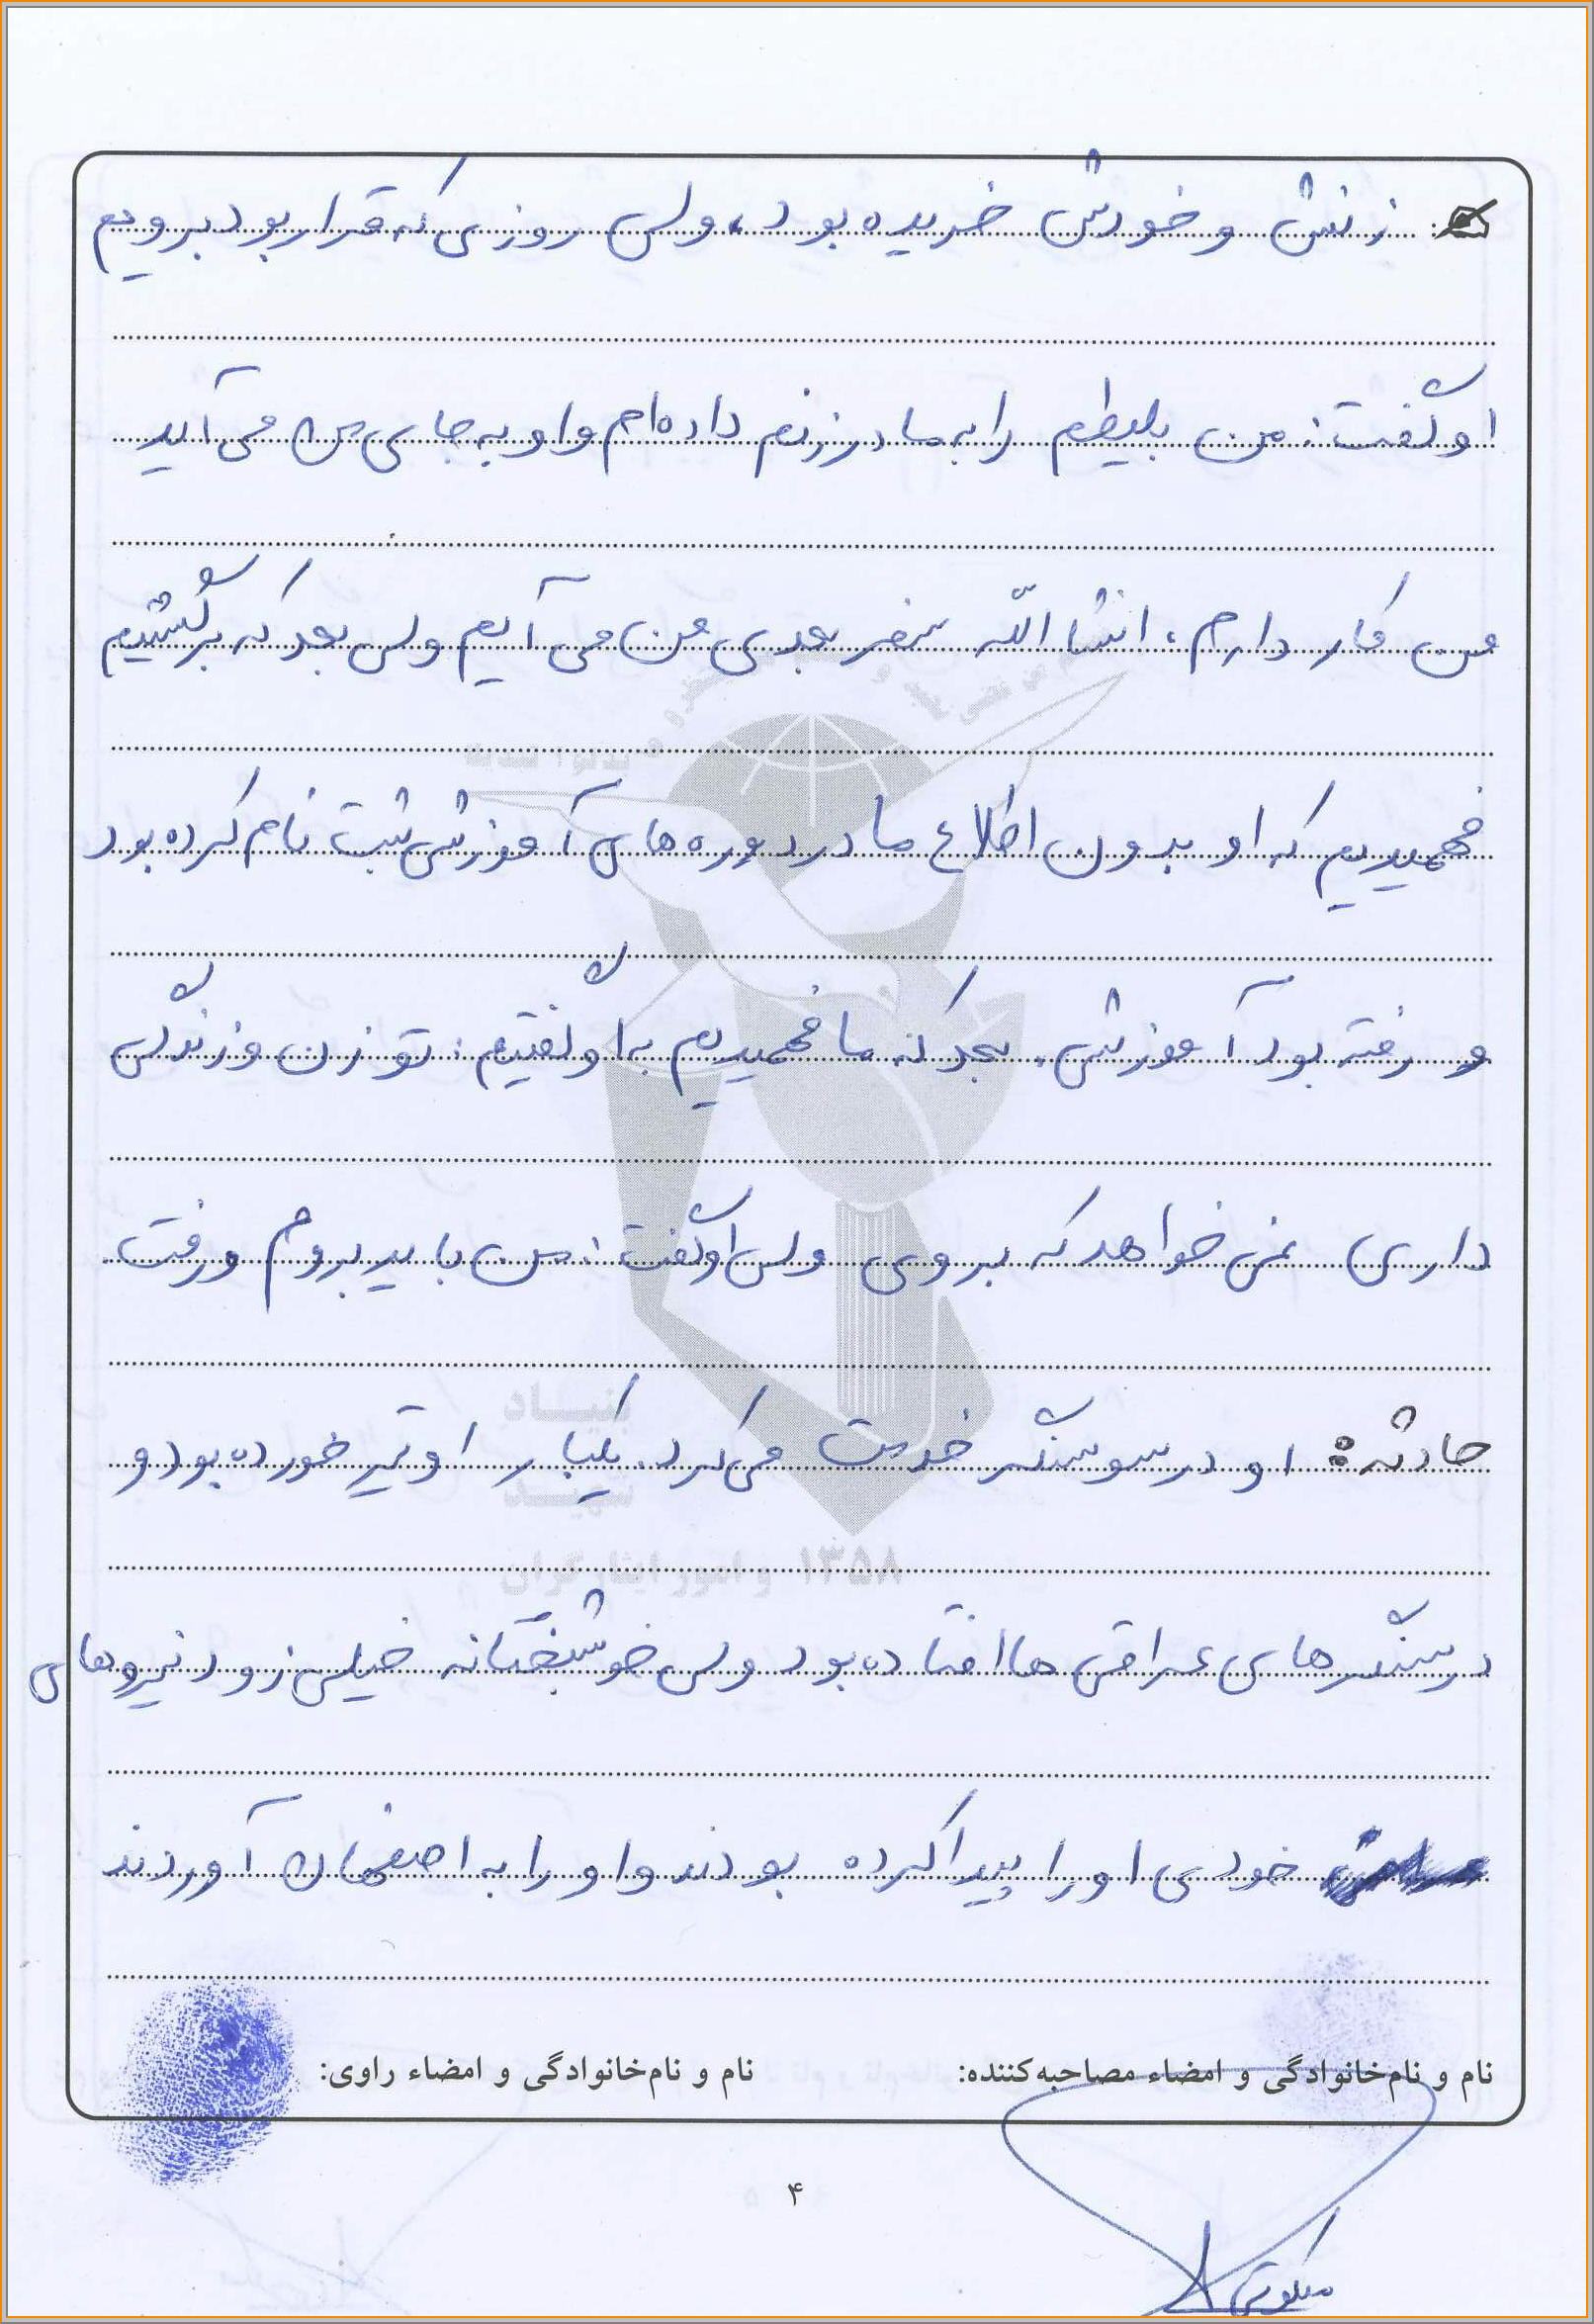 زنش و خودش خریده بود، ولی روزی که قرار بود برویم
او گفت: من بلیطم را به مادرزنم داده‌ام و او به جای من می‌آید
من کار دارم، انشاالله سفر بعدی من می‌آیم ولی بعد که برگشتیم
فهمیدیم که او بدون اطلاع ما در دوره‌های آموزشی ثبت نام کرده بود
و رفته بود آموزشی. بعد که ما فهمیدیم به او گفتیم: تو زن و زندگی
داری نمی‌خواهد که بروی ولی او گفت: من باید بروم و رفت
حادثه: او در سوسنگرد خدمت می‌کرد. یکبار او تیر خورده بود و
در سنگرهای عراقی‌ها افتاده بود ولی خوشبختانه خیلی زود نیروهای
خودی او را پیدا کرده بودند و او را به اصفهان آوردند
بنیاد
شهید
و امور ایثارگران ۱۳۵۸
نام و نام‌خانوادگی و امضاء مصاحبه‌کننده: نام و نام‌خانوادگی و امضاء راوی:
۴